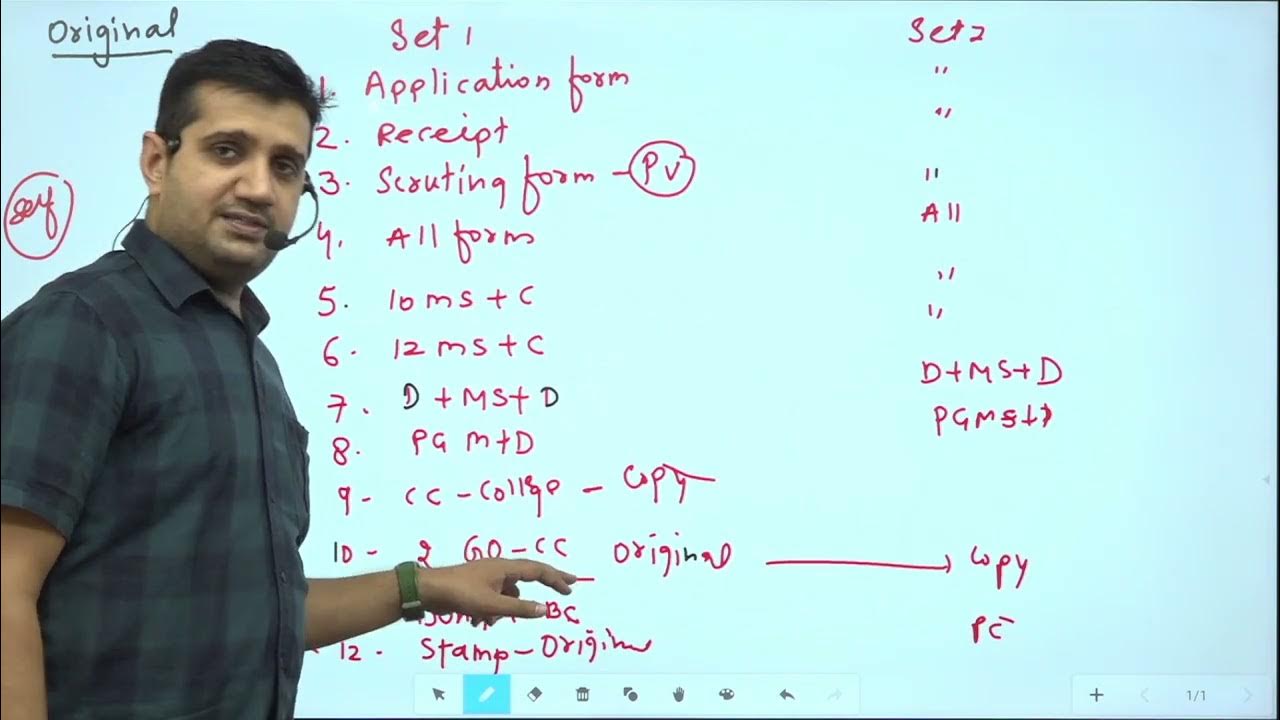 Original
Set 1 Set 2
1. Application form "
2. Receipt "
3. Scruting form - PV "
4. All forms All
5. 10 MS + C "
6. 12 MS + C "
7. D + MS + D D+MS+D
8. PG M+D PGMS+D
9- CC - College - Copy
10- 2 GO-CC Original Copy
BC PC
12. Stamp - Original
self
1/1